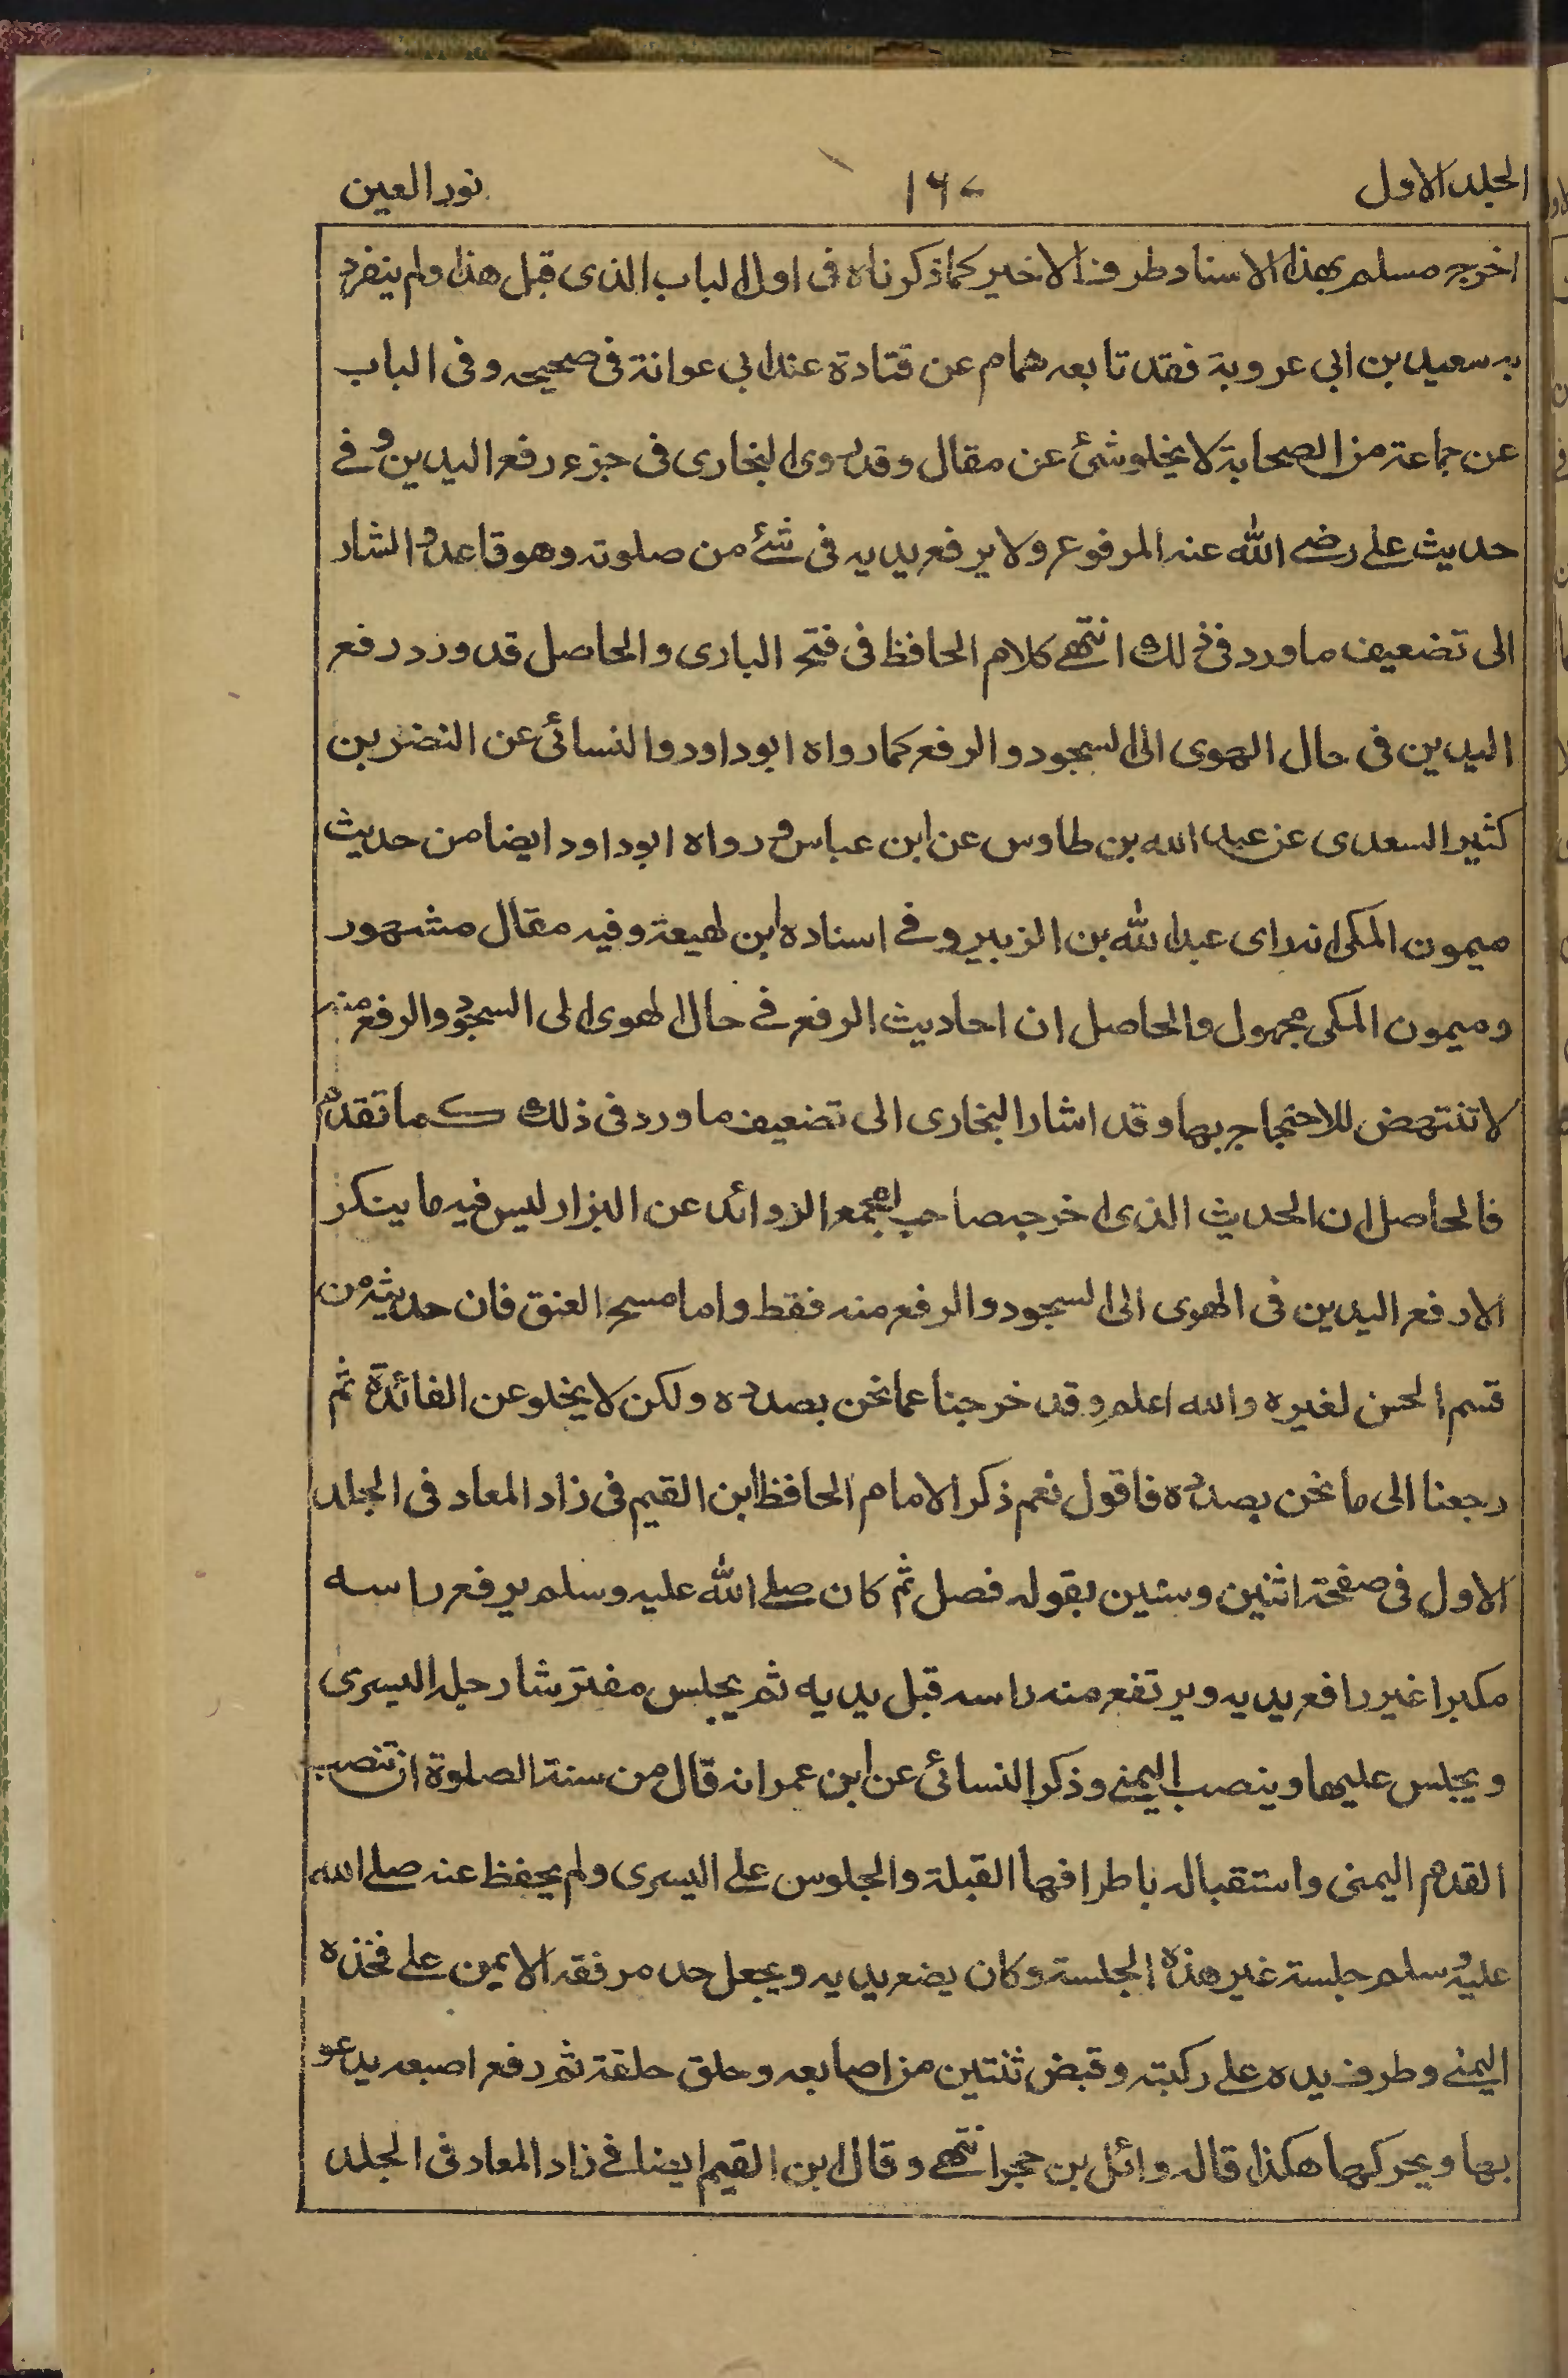 الجلد الاول ۱۶۰ نور العين
اخرجه مسلم بهذا الاسناد طرفه الاخير كما ذكرناه فى اول الباب الذى قبل هذا ولم ينفرد
به سعيد بن ابى عروبة فقد تابعه همام عن قتادة عند ابى عوانة فى صحيحه وفى الباب
عن جماعة من الصحابة لا يخلو شئ عن مقال وقد روى البخارى فى جزء رفع اليدين وفے
حديث على رضے الله عنه المرفوع ولا يرفع يديه فى شئے من صلوته وهو قاعد واشار
الى تضعيف ما ورد فى ذلك انتهے كلام الحافظ فى فتح البارى والحاصل قد ورد رفع
اليدين فى حال الهوى الى السجود والرفع كما رواه ابو داود والنسائى عن النضر بن
كثير السعدى عن عبد الله بن طاوس عن ابن عباس ورواه ابو داود ايضا من حديث
ميمون المكى انه راى عبد الله بن الزبير وفے اسناده ابن لهيعة وفيه مقال مشهور
وميمون المكى مجهول والحاصل ان احاديث الرفع فے حال الهوى الى السجود والرفع منه
لا تنتهض للاحتجاج بها وقد اشار البخارى الى تضعيف ما ورد فى ذلك كما تقدم
فالحاصل ان الحديث الذى اخرجه صاحب المجمع الزوائد عن البزار ليس فيه ما ينكر
الا رفع اليدين فى الهوى الى السجود والرفع منه فقط واما مسح العنق فان حديثه من
قسم الحسن لغيره والله اعلم وقد خرجنا عما نحن بصدده ولكن لا يخلو عن الفائدة ثم
رجعنا الى ما نحن بصدده فاقول نعم ذكر الامام الحافظ ابن القيم فى زاد المعاد فى الجلد
الاول فى صفحة اثنين وستين بقوله فصل ثم كان صلے الله عليه وسلم يرفع راسه
مكبرا غير رافع يديه ويرتفع منه راسه قبل يديه ثم يجلس مفترشا رجله اليسرى
ويجلس عليها وينصب اليمنے وذكر النسائى عن ابن عمر انه قال من سنة الصلوة ان تنصب
القدم اليمنى واستقباله باطرافها القبلة والجلوس على اليسرى ولم يحفظ عنه صلے الله
عليه وسلم جلسة غير هذه الجلسة وكان يضع يديه ويجعل حد مرفقه الايمن على فخذه
اليمنے وطرف يده على ركبته وقبض ثنتين من اصابعه وحلق حلقة ثم رفع اصبعه يدعو
بها ويحركها هكذا قاله وائل بن حجر انتهے وقال ابن القيم ايضا فے زاد المعاد فى الجلد